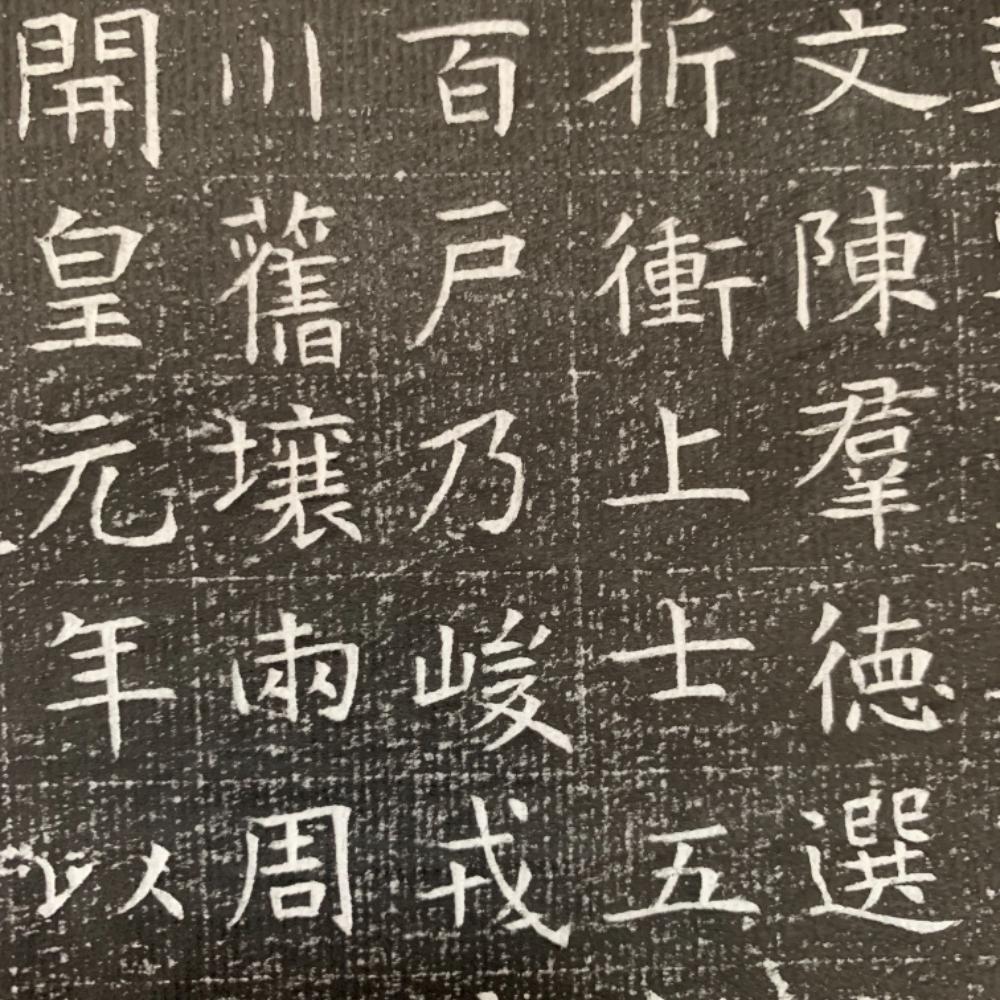 文陳羣德選
折衝上士五
百戶乃峻戎
川舊壤兩周
開皇元年以